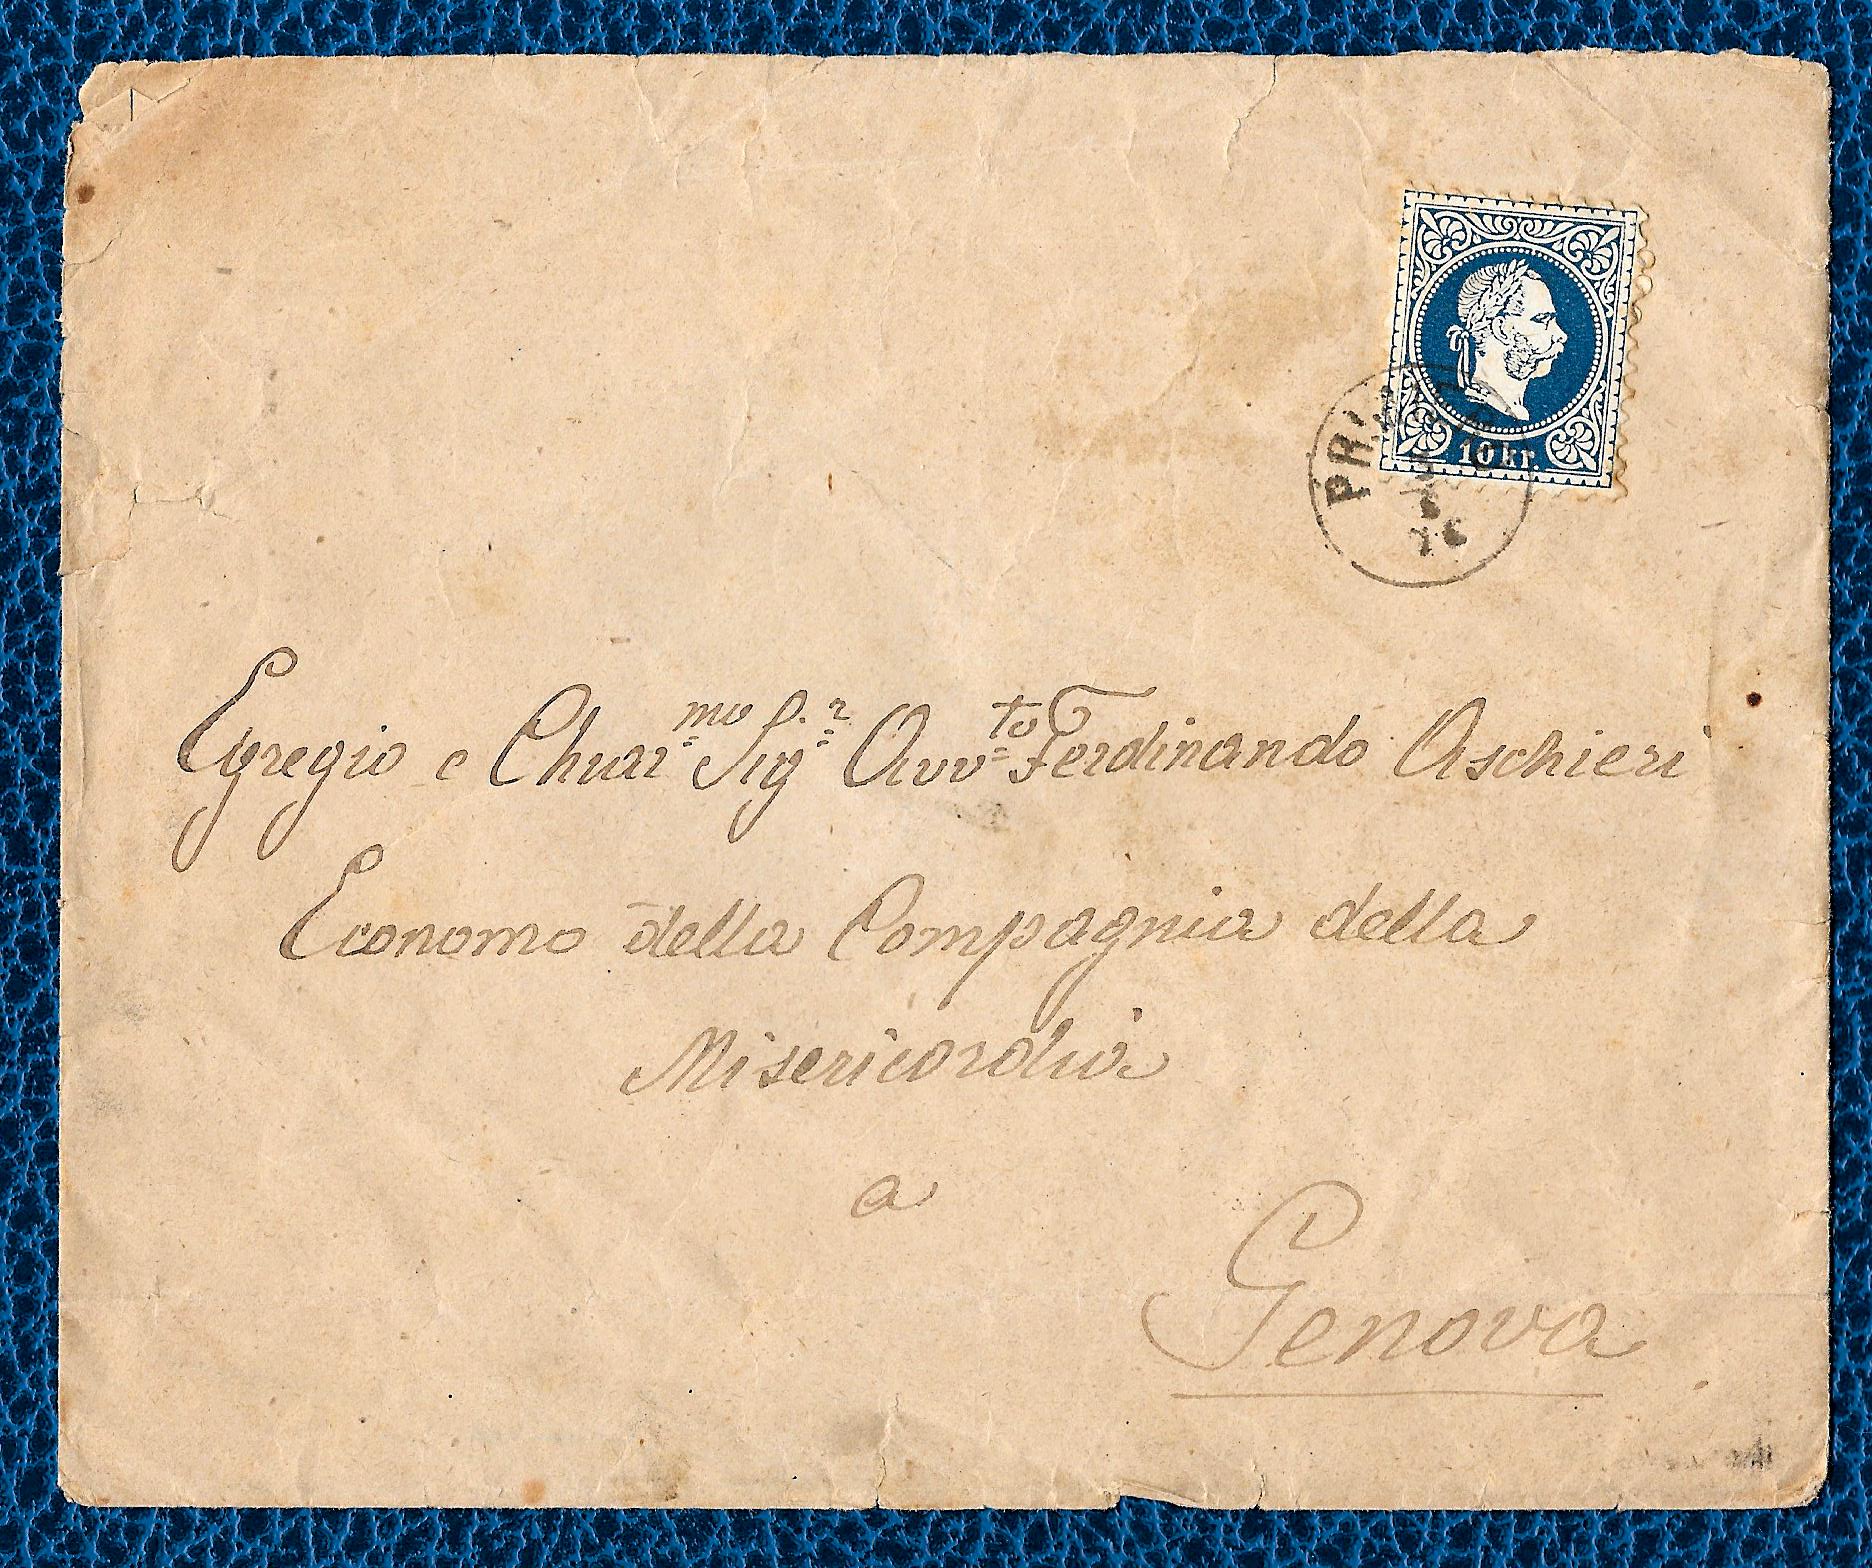 10 kr.
Egregio e Chiar.mo Sig.r Avv.to Ferdinando Aschieri
Economo della Compagnia della
Misericordia
a
Genova